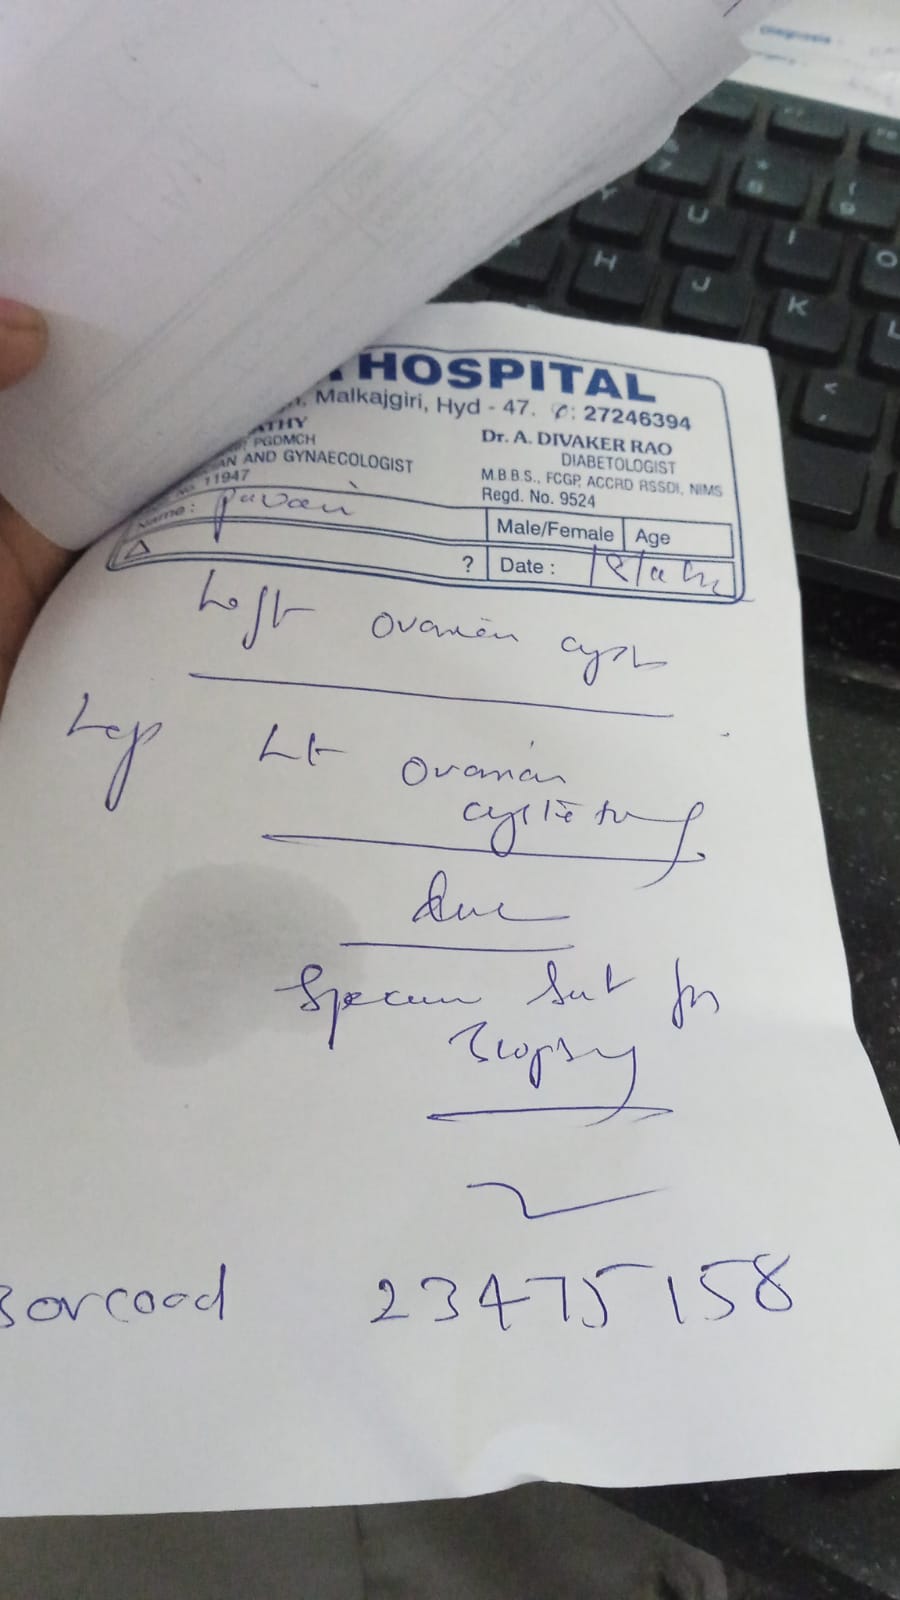 HOSPITAL
Malkajgiri, Hyd - 47. ✆: 27246394
ATHY
PGDMCH
AN AND GYNAECOLOGIST
11947
Dr. A. DIVAKER RAO
DIABETOLOGIST
M.B.B.S., FCGP, ACCRD RSSDI, NIMS
Regd. No. 9524
Name : Pavani
Male/Female Age
△ ?
Date :
Left ovarian cyst
Lap Lt ovarian
done
Specimen Sent for
Biopsy
Borcood 23475158
U
I
O
H
J
K
L
Diagnosis